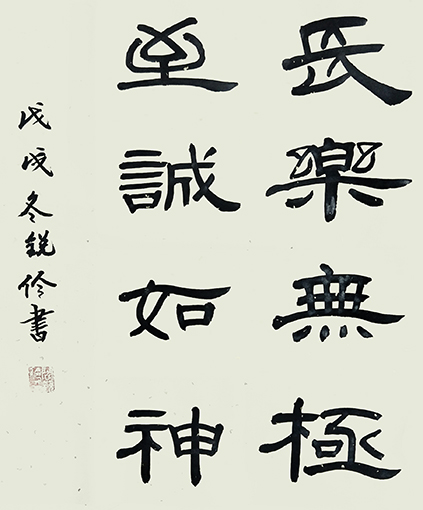 長樂無極
至誠如神
戊戌冬銳伶書